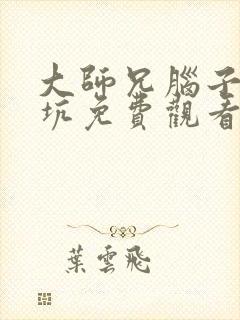 大師兄腦子
坑免費觀看
葉雲飛